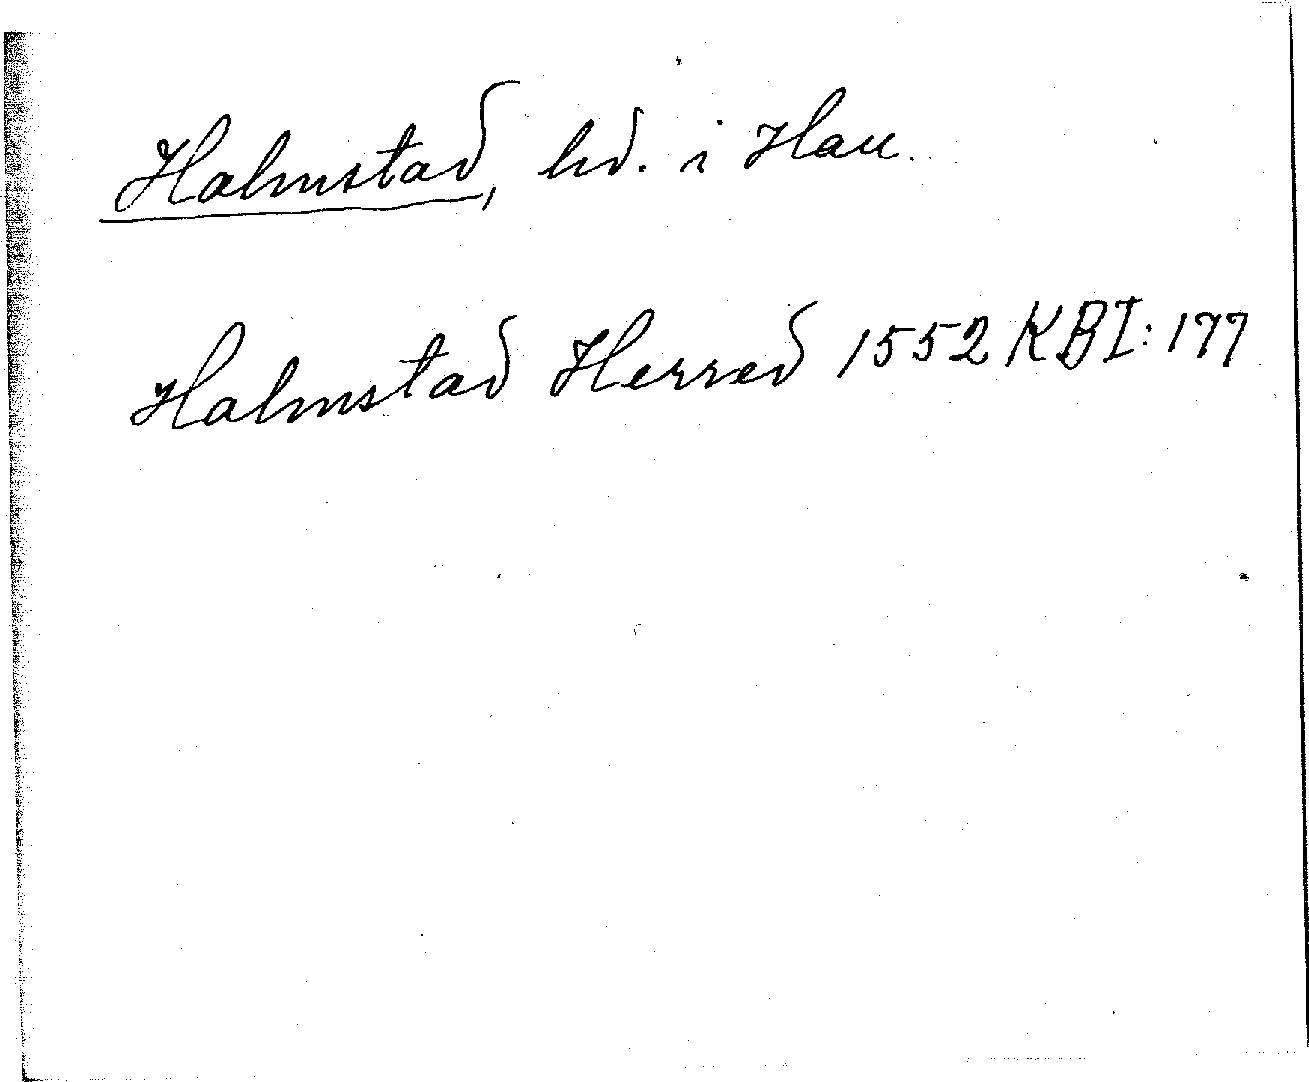 Halmstad, hd. i Hall.
Halmstad Herred 1552 KBI: 177